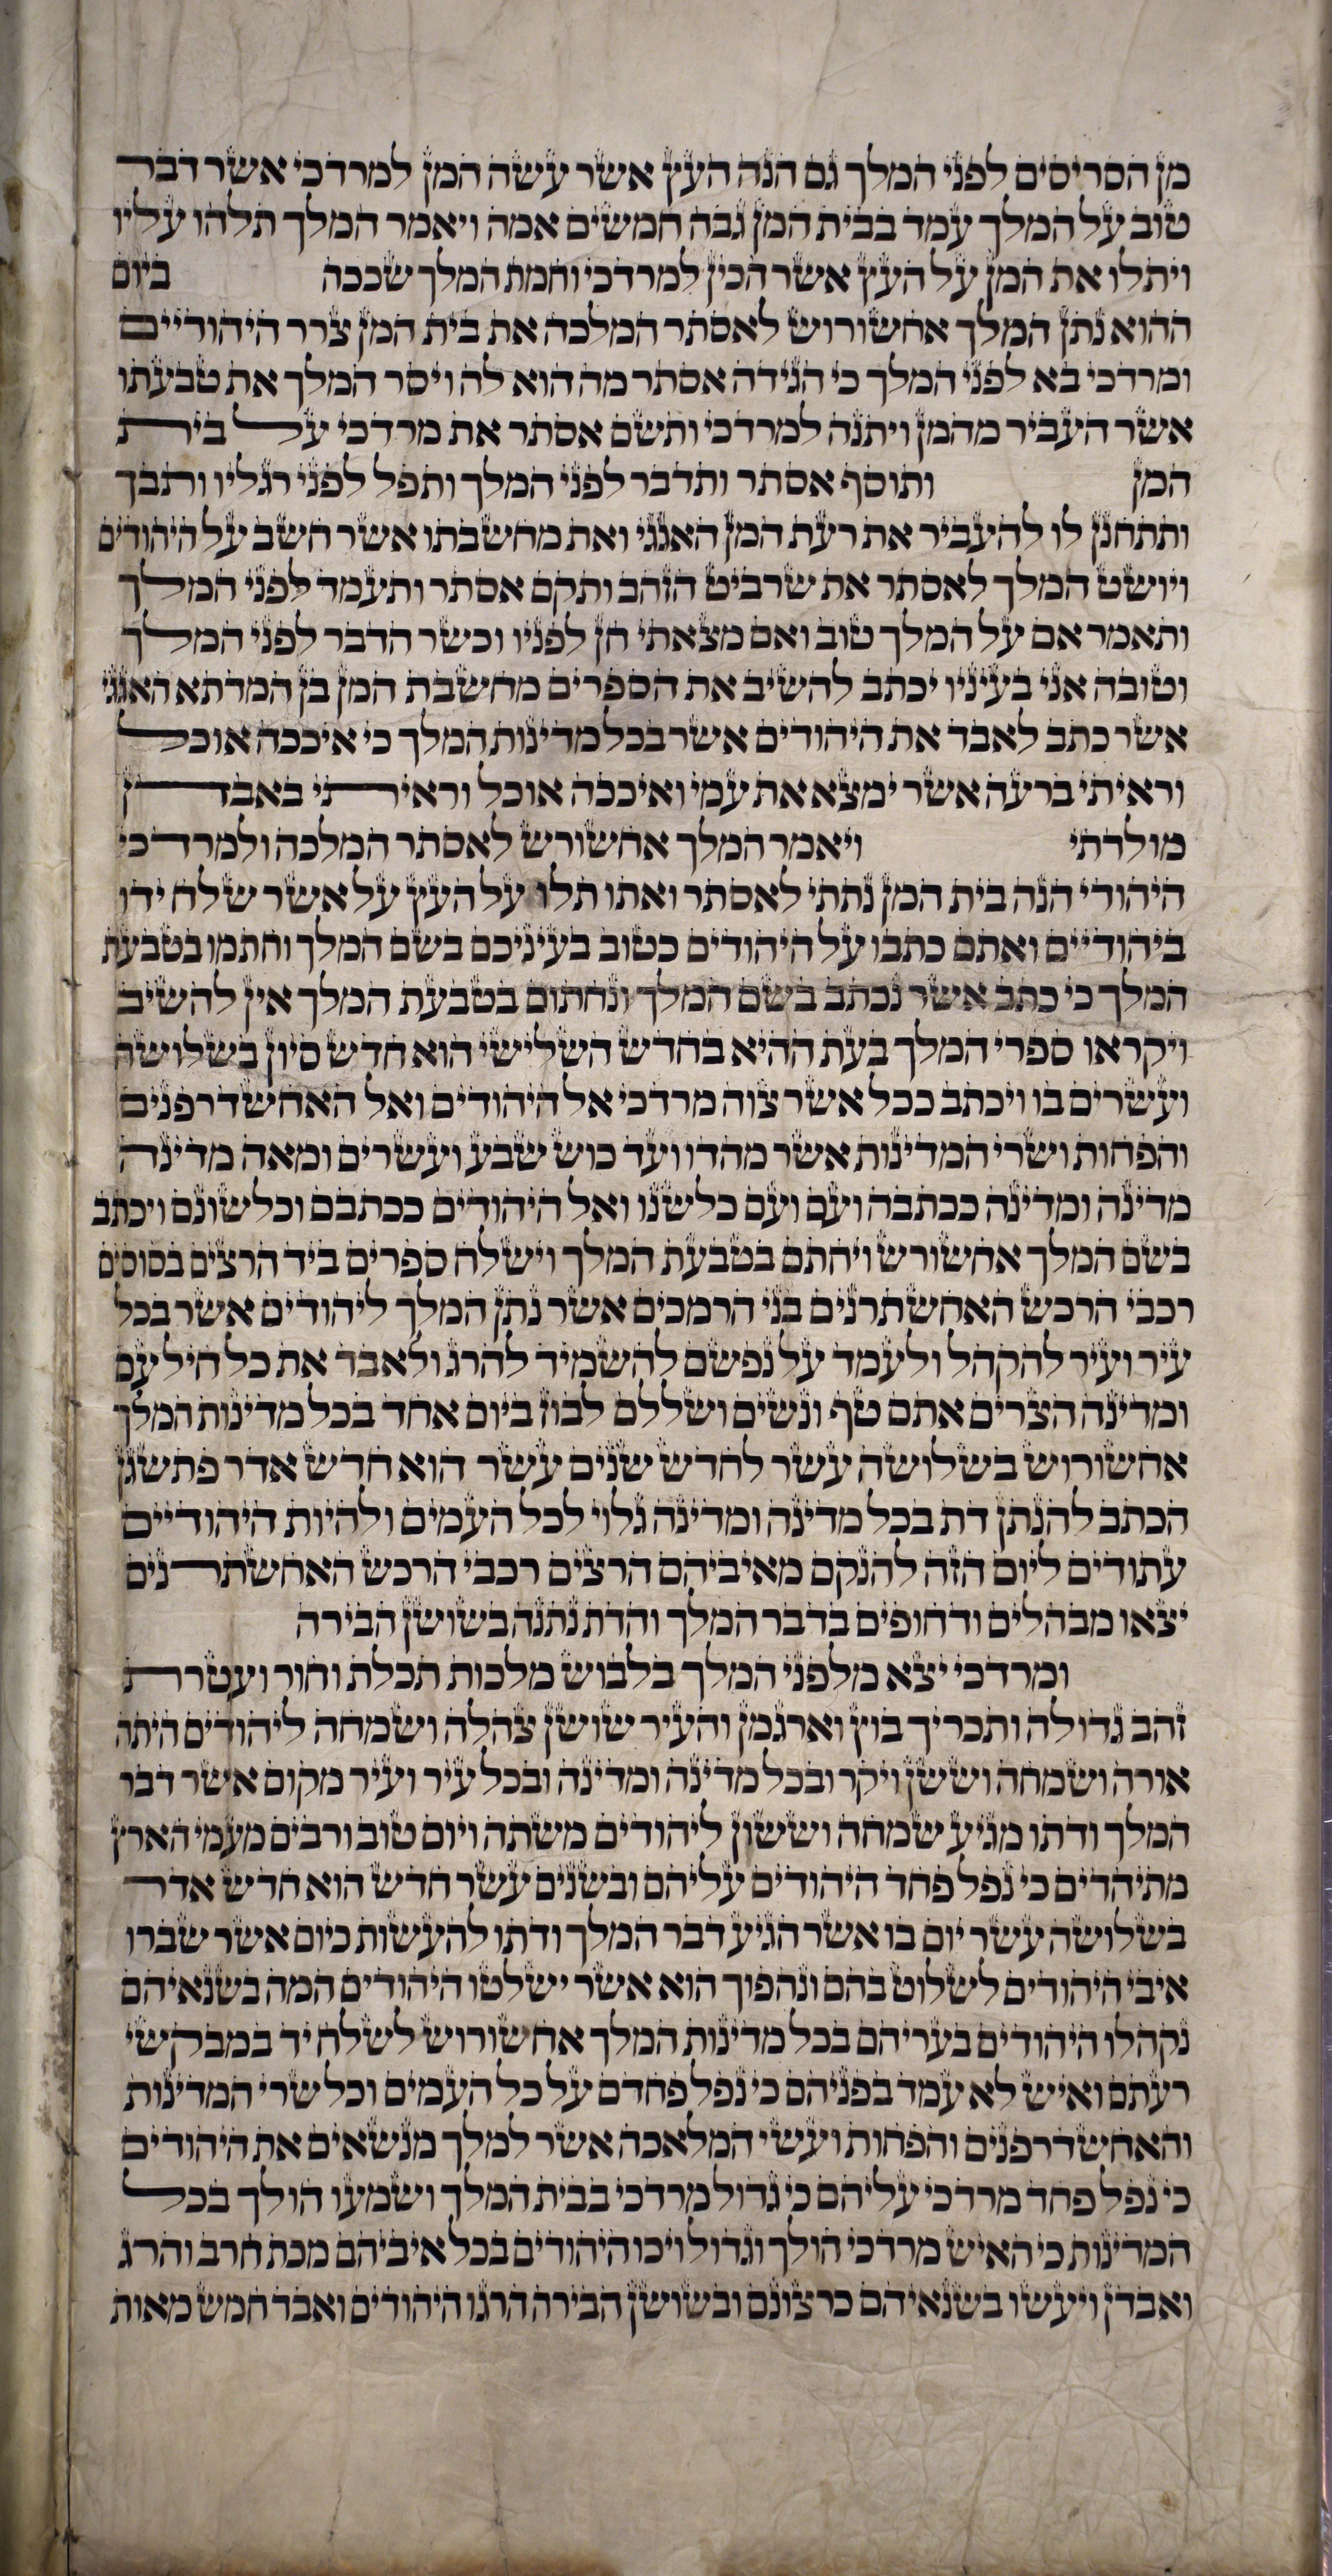 מן הסריסים לפני המלך גם הנה העץ אשר עשה המן למרדכי אשר דבר
טוב על המלך עמד בבית המן גבה חמשים אמה ויאמר המלך תלהו עליו
ויתלו את המן על העץ אשר הכין למרדכי וחמת המלך שככה ביום
ההוא נתן המלך אחשורוש לאסתר המלכה את בית המן צרר היהודיים
ומרדכי בא לפני המלך כי הגידה אסתר מה הוא לה ויסר המלך את טבעתו
אשר העביר מהמן ויתנה למרדכי ותשם אסתר את מרדכי על בית
המן ותוסף אסתר ותדבר לפני המלך ותפל לפני רגליו ותבך
ותתחנן לו להעביר את רעת המן האגגי ואת מחשבתו אשר חשב על היהודים
ויושט המלך לאסתר את שרביט הזהב ותקם אסתר ותעמד לפני המלך
ותאמר אם על המלך טוב ואם מצאתי חן לפניו וכשר הדבר לפני המלך
וטובה אני בעיניו יכתב להשיב את הספרים מחשבת המן בן המדתא האגגי
אשר כתב לאבד את היהודים אשר בכל מדינות המלך כי איככה אוכל
וראיתי ברעה אשר ימצא את עמי ואיככה אוכל וראיתי באבדן
מולדתי ויאמר המלך אחשורש לאסתר המלכה ולמרדכי
היהודי הנה בית המן נתתי לאסתר ואתו תלו על העץ על אשר שלח ידו
ביהודיים ואתם כתבו על היהודים כטוב בעיניכם בשם המלך וחתמו בטבעת
המלך כי כתב אשר נכתב בשם המלך ונחתום בטבעת המלך אין להשיב
ויקראו ספרי המלך בעת ההיא בחדש השלישי הוא חדש סיון בשלושה
ועשרים בו ויכתב ככל אשר צוה מרדכי אל היהודים ואל האחשדרפנים
והפחות ושרי המדינות אשר מהדו ועד כוש שבע ועשרים ומאה מדינה
מדינה ומדינה ככתבה ועם ועם כלשנו ואל היהודים ככתבם וכלשונם ויכתב
בשם המלך אחשורש ויחתם בטבעת המלך וישלח ספרים ביד הרצים בסוסים
רכבי הרכש האחשתרנים בני הרמכים אשר נתן המלך ליהודים אשר בכל
עיר ועיר להקהל ולעמד על נפשם להשמיד להרג ולאבד את כל חיל עם
ומדינה הצרים אתם טף ונשים ושללם לבוז ביום אחד בכל מדינות המלך
אחשורוש בשלושה עשר לחדש שנים עשר הוא חדש אדר פתשגן
הכתב להנתן דת בכל מדינה ומדינה גלוי לכל העמים ולהיות היהודיים
עתודים ליום הזה להנקם מאיביהם הרצים רכבי הרכש האחשתרנים
יצאו מבהלים ודחופים בדבר המלך והדת נתנה בשושן הבירה
ומרדכי יצא מלפני המלך בלבוש מלכות תכלת וחור ועטרת
זהב גדולה ותכריך בוץ וארגמן והעיר שושן צהלה ושמחה ליהודים היתה
אורה ושמחה וששן ויקר ובכל מדינה ומדינה ובכל עיר ועיר מקום אשר דבר
המלך ודתו מגיע שמחה וששון ליהודים משתה ויום טוב ורבים מעמי הארץ
מתיהדים כי נפל פחד היהודים עליהם ובשנים עשר חדש הוא חדש אדר
בשלושה עשר יום בו אשר הגיע דבר המלך ודתו להעשות ביום אשר שברו
איבי היהודים לשלוט בהם ונהפוך הוא אשר ישלטו היהודים המה בשנאיהם
נקהלו היהודים בעריהם בכל מדינות המלך אחשורוש לשלח יד במבקשי
רעתם ואיש לא עמד בפניהם כי נפל פחדם על כל העמים וכל שרי המדינות
והאחשדרפנים והפחות ועשי המלאכה אשר למלך מנשאים את היהודים
כי נפל פחד מרדכי עליהם כי גדול מרדכי בבית המלך ושמעו הולך בכל
המדינות כי האיש מרדכי הולך וגדול ויכו היהודים בכל איביהם מכת חרב והרג
ואבדן ויעשו בשנאיהם כרצונם ובשושן הבירה הרגו היהודים ואבד חמש מאות